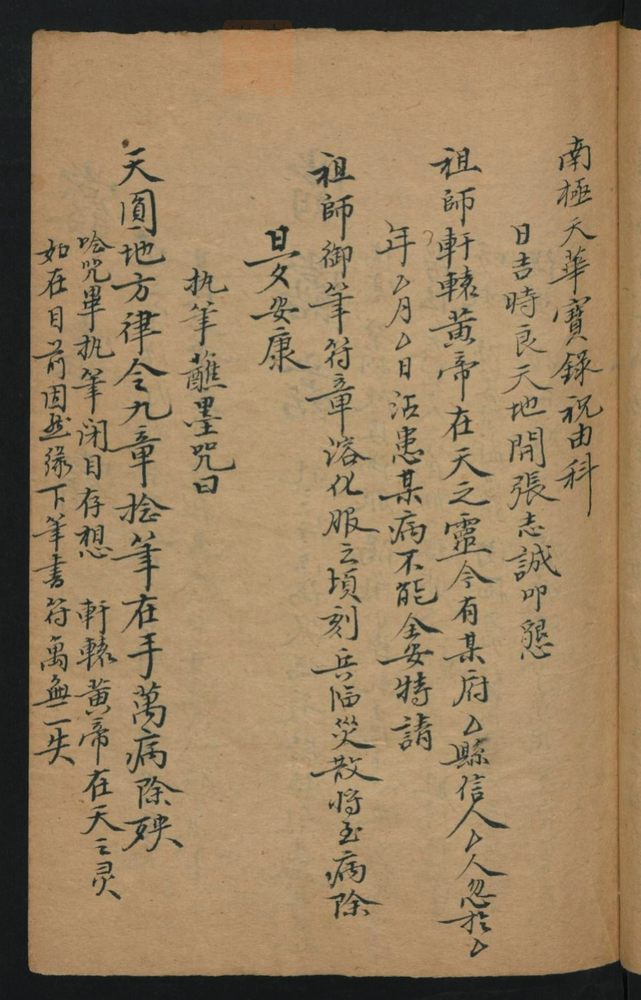 南極天華寶錄祝由科
日吉時良天地開張志誠叩懇
祖師軒轅黃帝在天之靈今有某府厶縣信人厶人忽於厶
年厶月厶日沾患某病不能全安特請
祖師御筆符章溶化服之頃刻兵臨災散將至病除
旦夕安康
执筆蘸墨咒曰
天圓地方律令九章捻筆在手萬病除殃
唸咒畢执筆闭目存想 軒轅黃帝在天之灵
如在目前因此缘下筆書符萬無一失